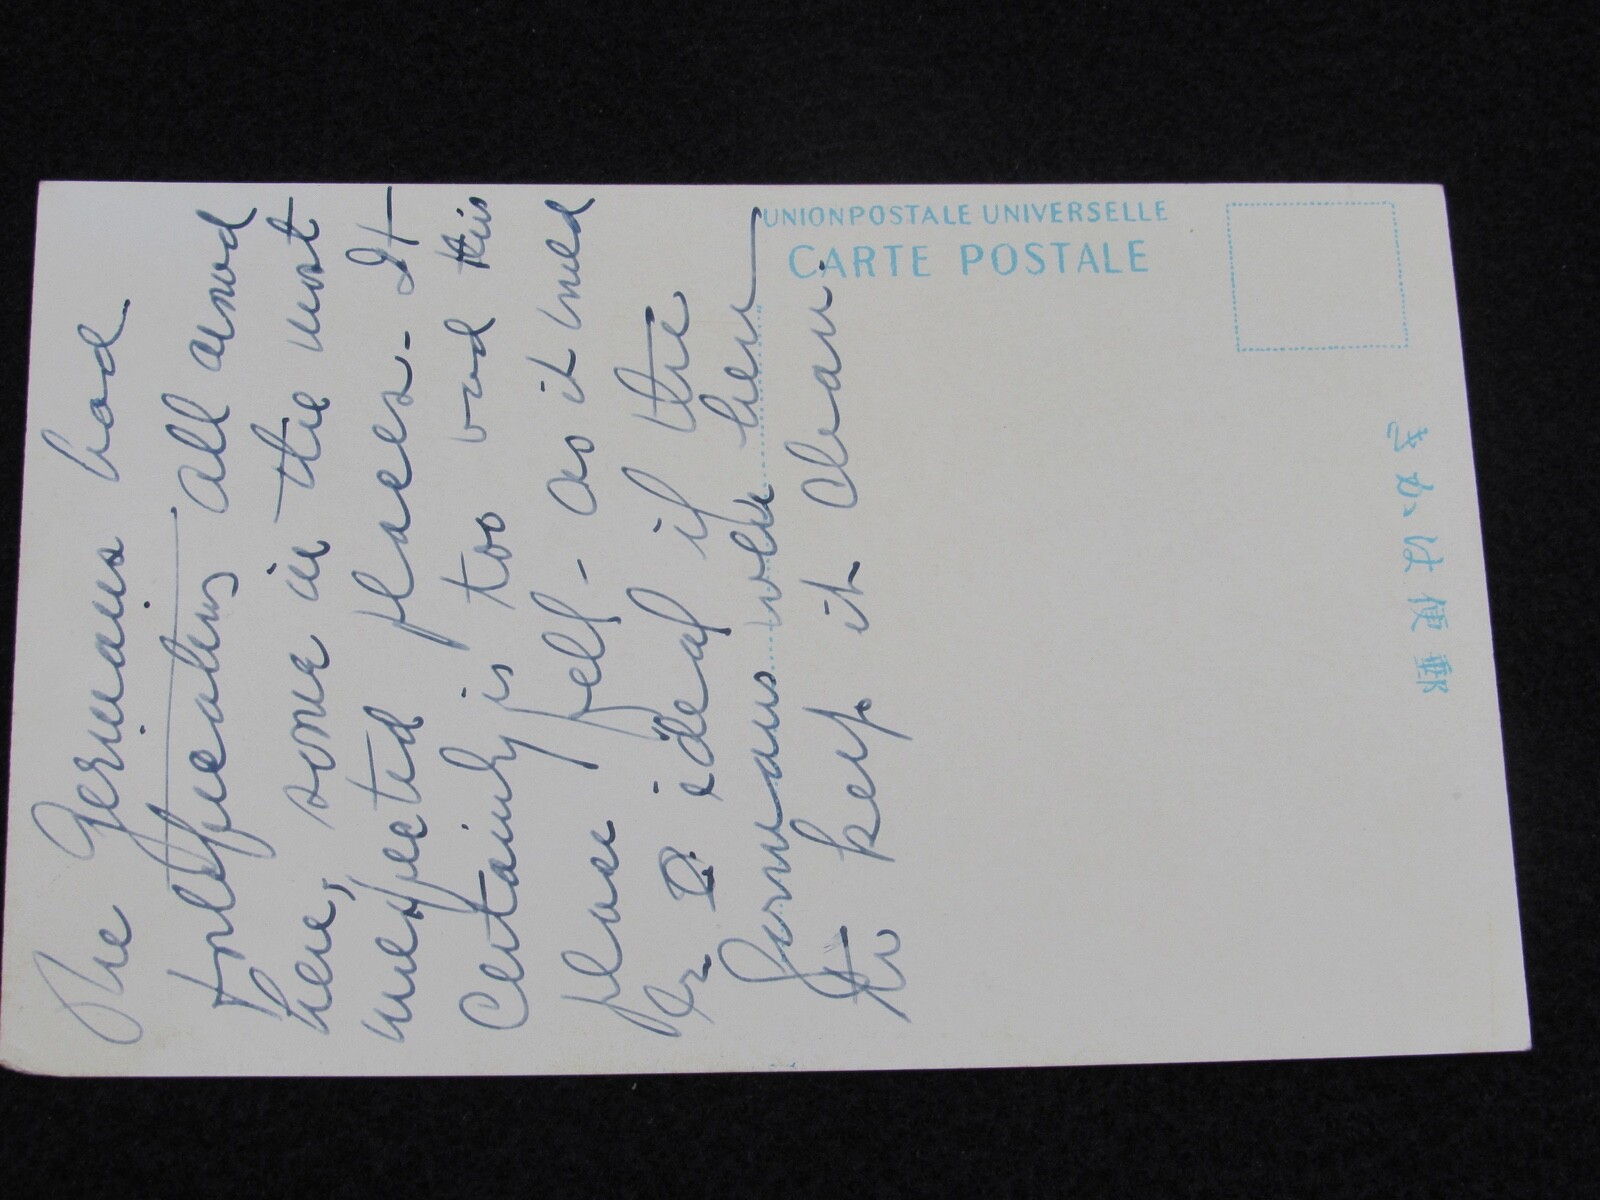 UNION POSTALE UNIVERSELLE
CARTE POSTALE
郵便はがき
The Germans had
fortifications all around
here, some in the most
unexpected places - It
Certainly is too bad this
place fell - as it
is ideal if the
Germans were here
to keep it clean.